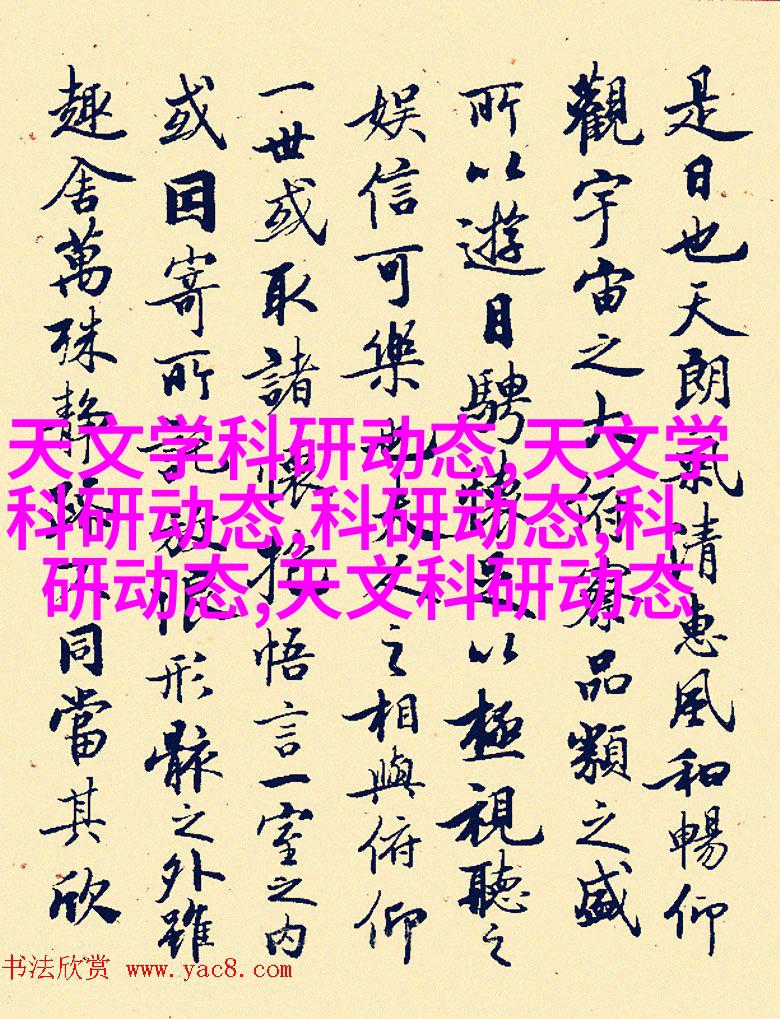 是日也天朗氣清惠風和暢仰
觀宇宙之大俯察品類之盛
所以遊目騁懷足以極視聽之
娱信可樂也夫人之相與俯仰
一世或取諸懷抱悟言一室之内
或因寄所託放浪形骸之外雖
趣舍萬殊静躁不同當其欣
天文学科研动态,天文学
科研动态,科研动态,科
研动态,天文科研动态
书法欣赏 www.yac8.com